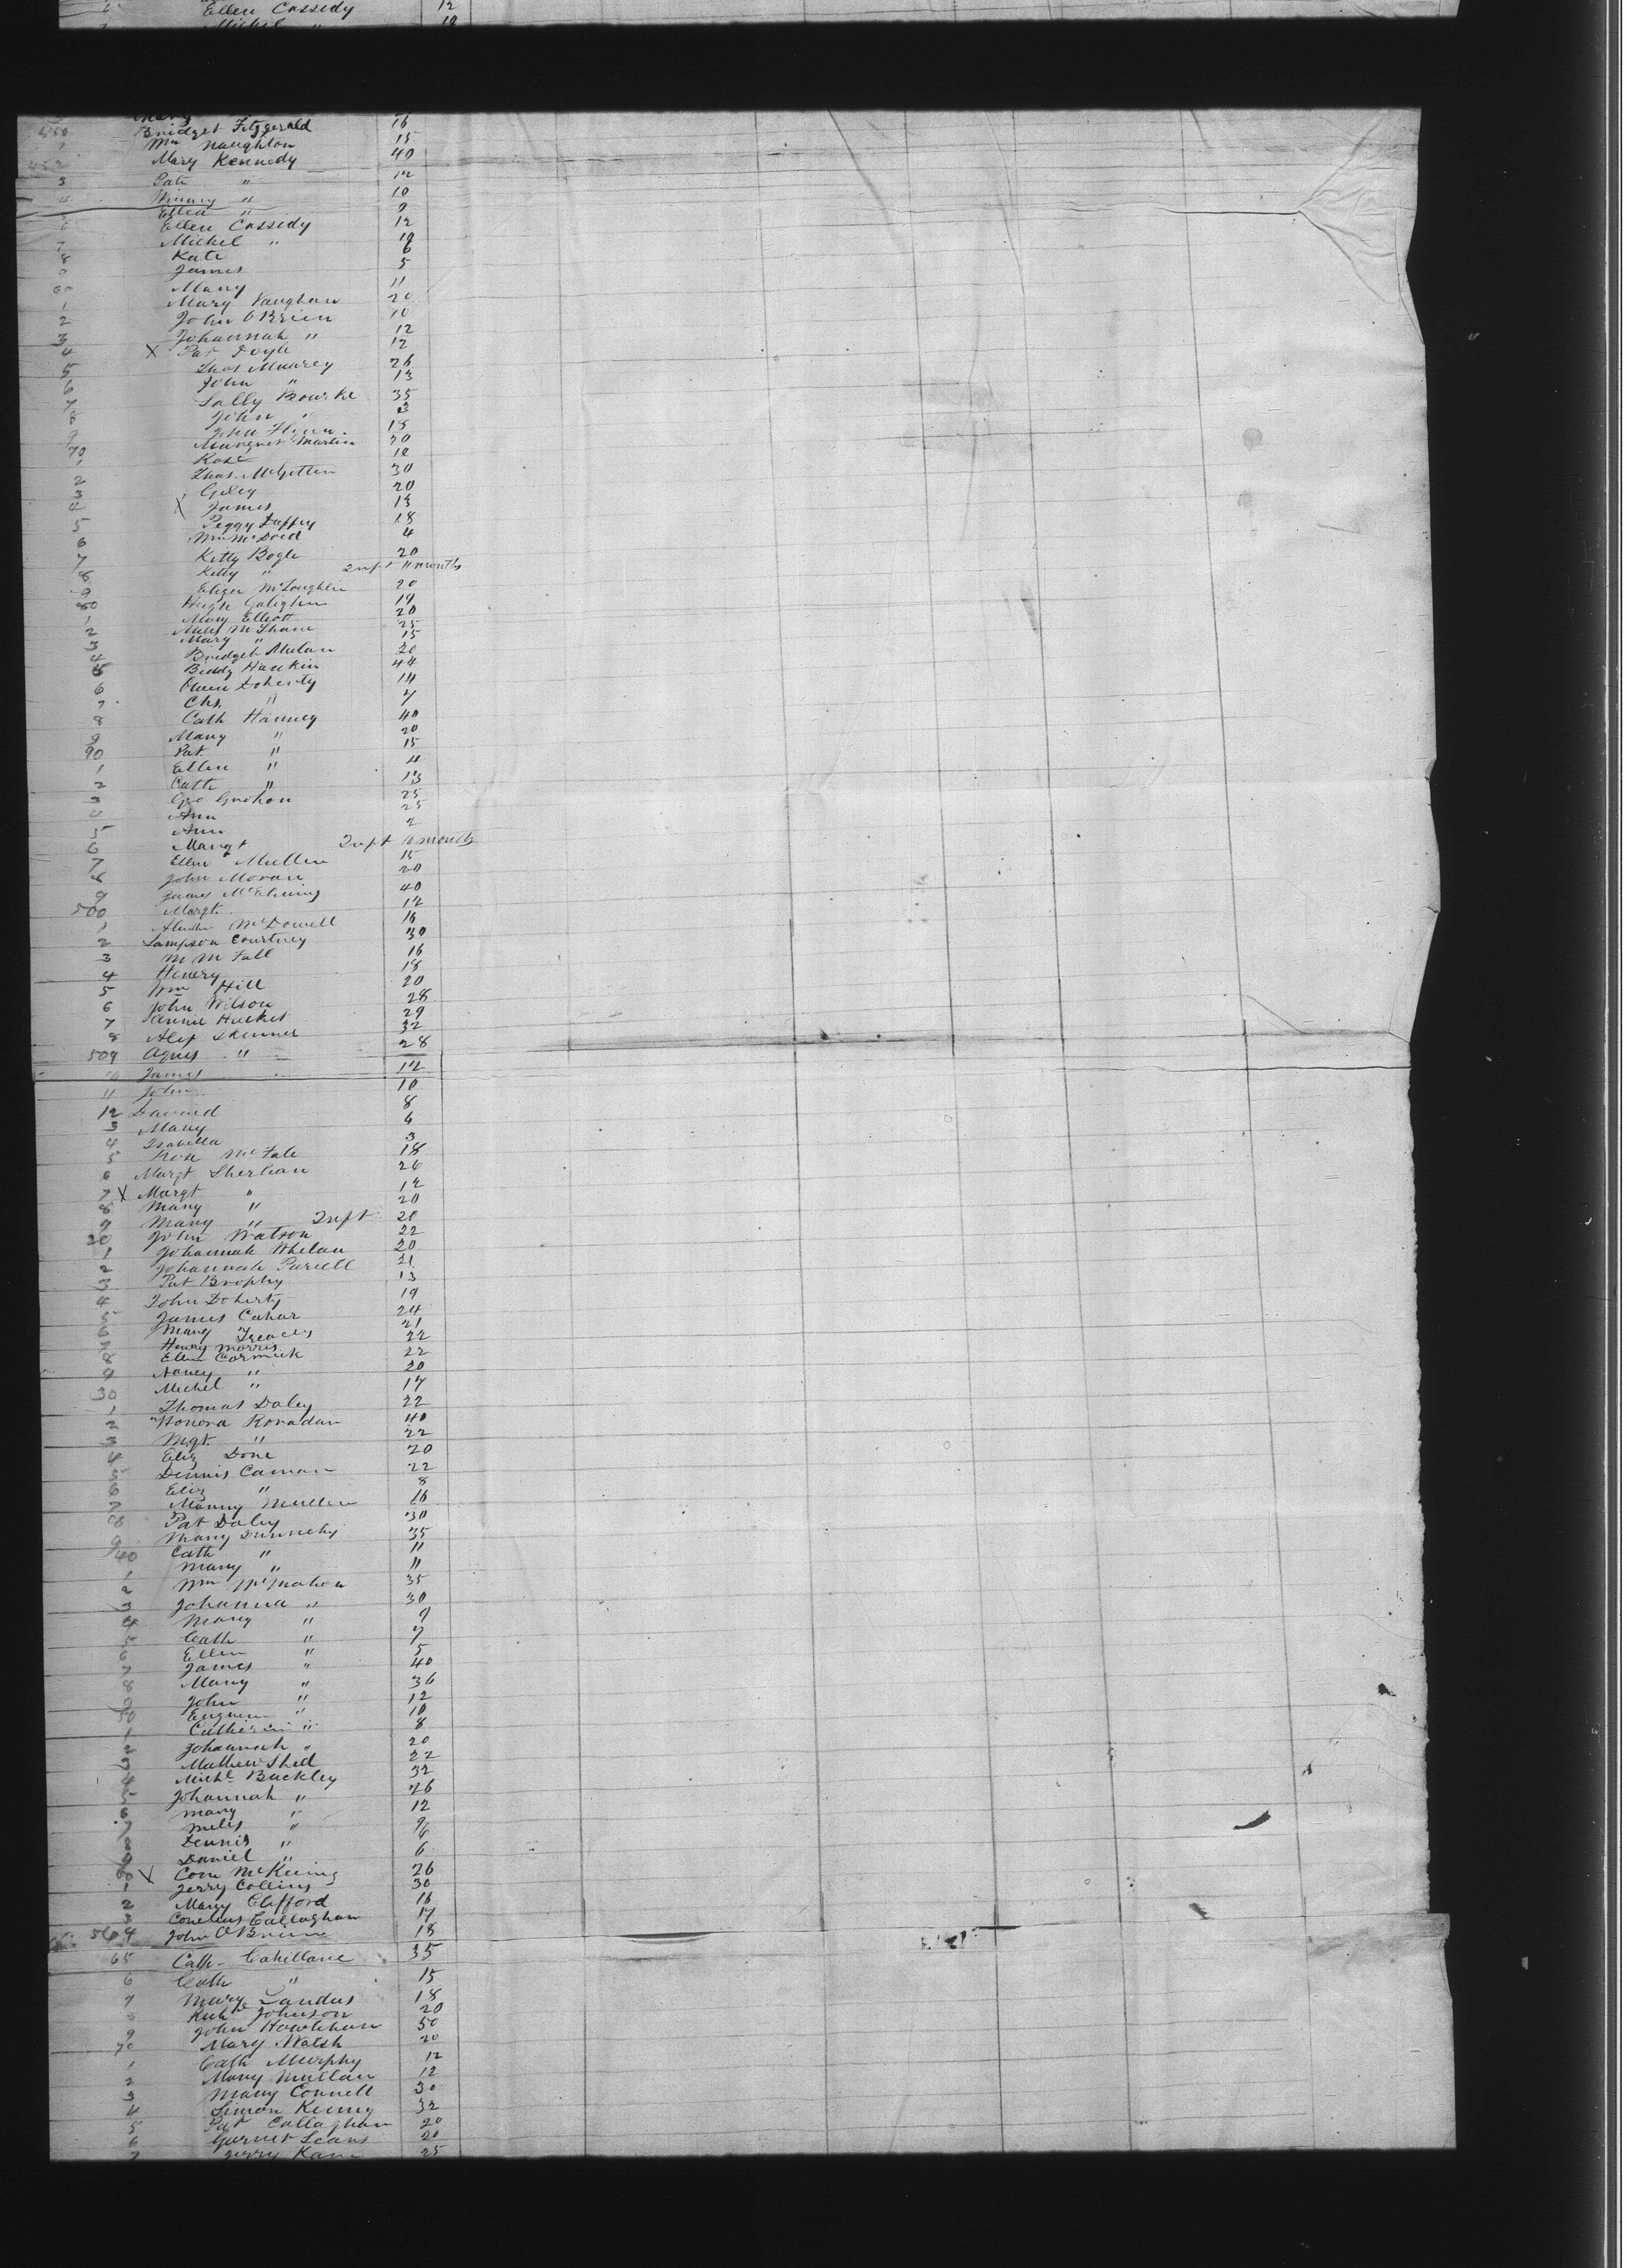 6 Ellen Cassedy 12
Michel " 19
Mary 16
450 Bridget Fitzgerald
1 Wm Naughton 15
452 Mary Kennedy 40
3 Pat " 12
4 Winney " 10
Ellen " 9
Ellen Cassedy 12
7 Michel " 19
8 Kate 6
9 James 5
60 Mary 11
1 Mary Vaughan 20
2 John OBrien 10
3 Johannah " 12
4 X Pat Doyle 12
5 Thos 26
6 John " 13
7 Sally Bourke 35
8 John " 3
9 John Flynn 15
70 Margret Martin 20
1 Kate 12
2 Thos. McGettin 30
3 20
4 X James 13
5 Peggy Duffey 18
6 Wm McDoed 4
7 Kitty Bogle 20
8 Kitty " Inft 11 months
9 McLaughlin 20
80 Hugh 19
1 Mary Elliott 20
2 McShane 25
3 Mary " 15
4 Bridget Mulan 20
5 Biddy Hankin 44
6 Owen Doherty 14
7 Chs. " 7
8 Cath Hanney 40
9 Mary " 20
90 Pat " 15
1 Ellen " 11
2 Cath " 13
3 Geo Grahon 25
4 Ann 25
5 Ann 2
6 Margt Inft 10 months
7 Ellen Mullen 15
8 John Moran 20
9 James 40
500 Margt. 12
1 McDowell 16
2 Sampson Courtney 30
3 M M Fall 16
4 Henery 18
5 Wm Hill 20
6 John Wilson 28
7 Annie Hucket 29
8 Alex Skenner 32
509 Agnes " 28
10 James 12
11 John 10
12 Davied 8
3 Mary 6
4 Isabella 3
5 Rose McFale 18
6 Margt Sherlean 26
7 X Margt " 12
8 Mary " 20
9 Mary " Inft 20
20 John Watson 22
1 Johannah Whelan 20
2 Johannah Purcell 21
3 Pat Brophy 13
4 John Doherty 19
5 James Cahar 24
6 Mary 21
7 Henry Morris 22
8 Ellen Cormick 22
9 Nancy " 20
30 Michel " 17
1 Thomas Daley 22
2 Honora Ronadan 40
3 Mgt. " 22
4 Eliz Done 20
5 Dennis Caman 22
6 Eliz " 8
7 Manny Mullen 16
8 Pat Daley 30
9 Mary Dunnehy 35
40 Cath " 11
Mary " 11
1 Wm McMahon 35
2 Johanna " 30
3 Mary " 9
4 Cath " 7
5 Ellen " 5
6 James " 40
7 Mary " 36
8 John " 12
9 Eugene " 10
50 Catherine " 8
1 Johannah " 20
2 Mathew Shed 22
3 Michl Buckley 32
4 Johannah " 26
5 Mary " 12
6 Miles " 9
7 Dennis " 8
8 Daniel " 6
60 X Corn McKuing 26
1 Jerry Collins 30
2 Mary Clifford 16
3 Conelius Callaghan 17
564 John OBrien 18
65 Cath Cahillane 35
6 Cath " 15
7 Mary Landus 18
8 Johnson 20
9 John Howlihan 50
70 Mary Walsh 20
1 Cath Murphy 12
2 Mary Mullan 12
3 Mary Connell 30
4 Simon Kenny 32
5 Pat Callaghan 20
6 Garret Leans 20
7 Jerry Kane 25